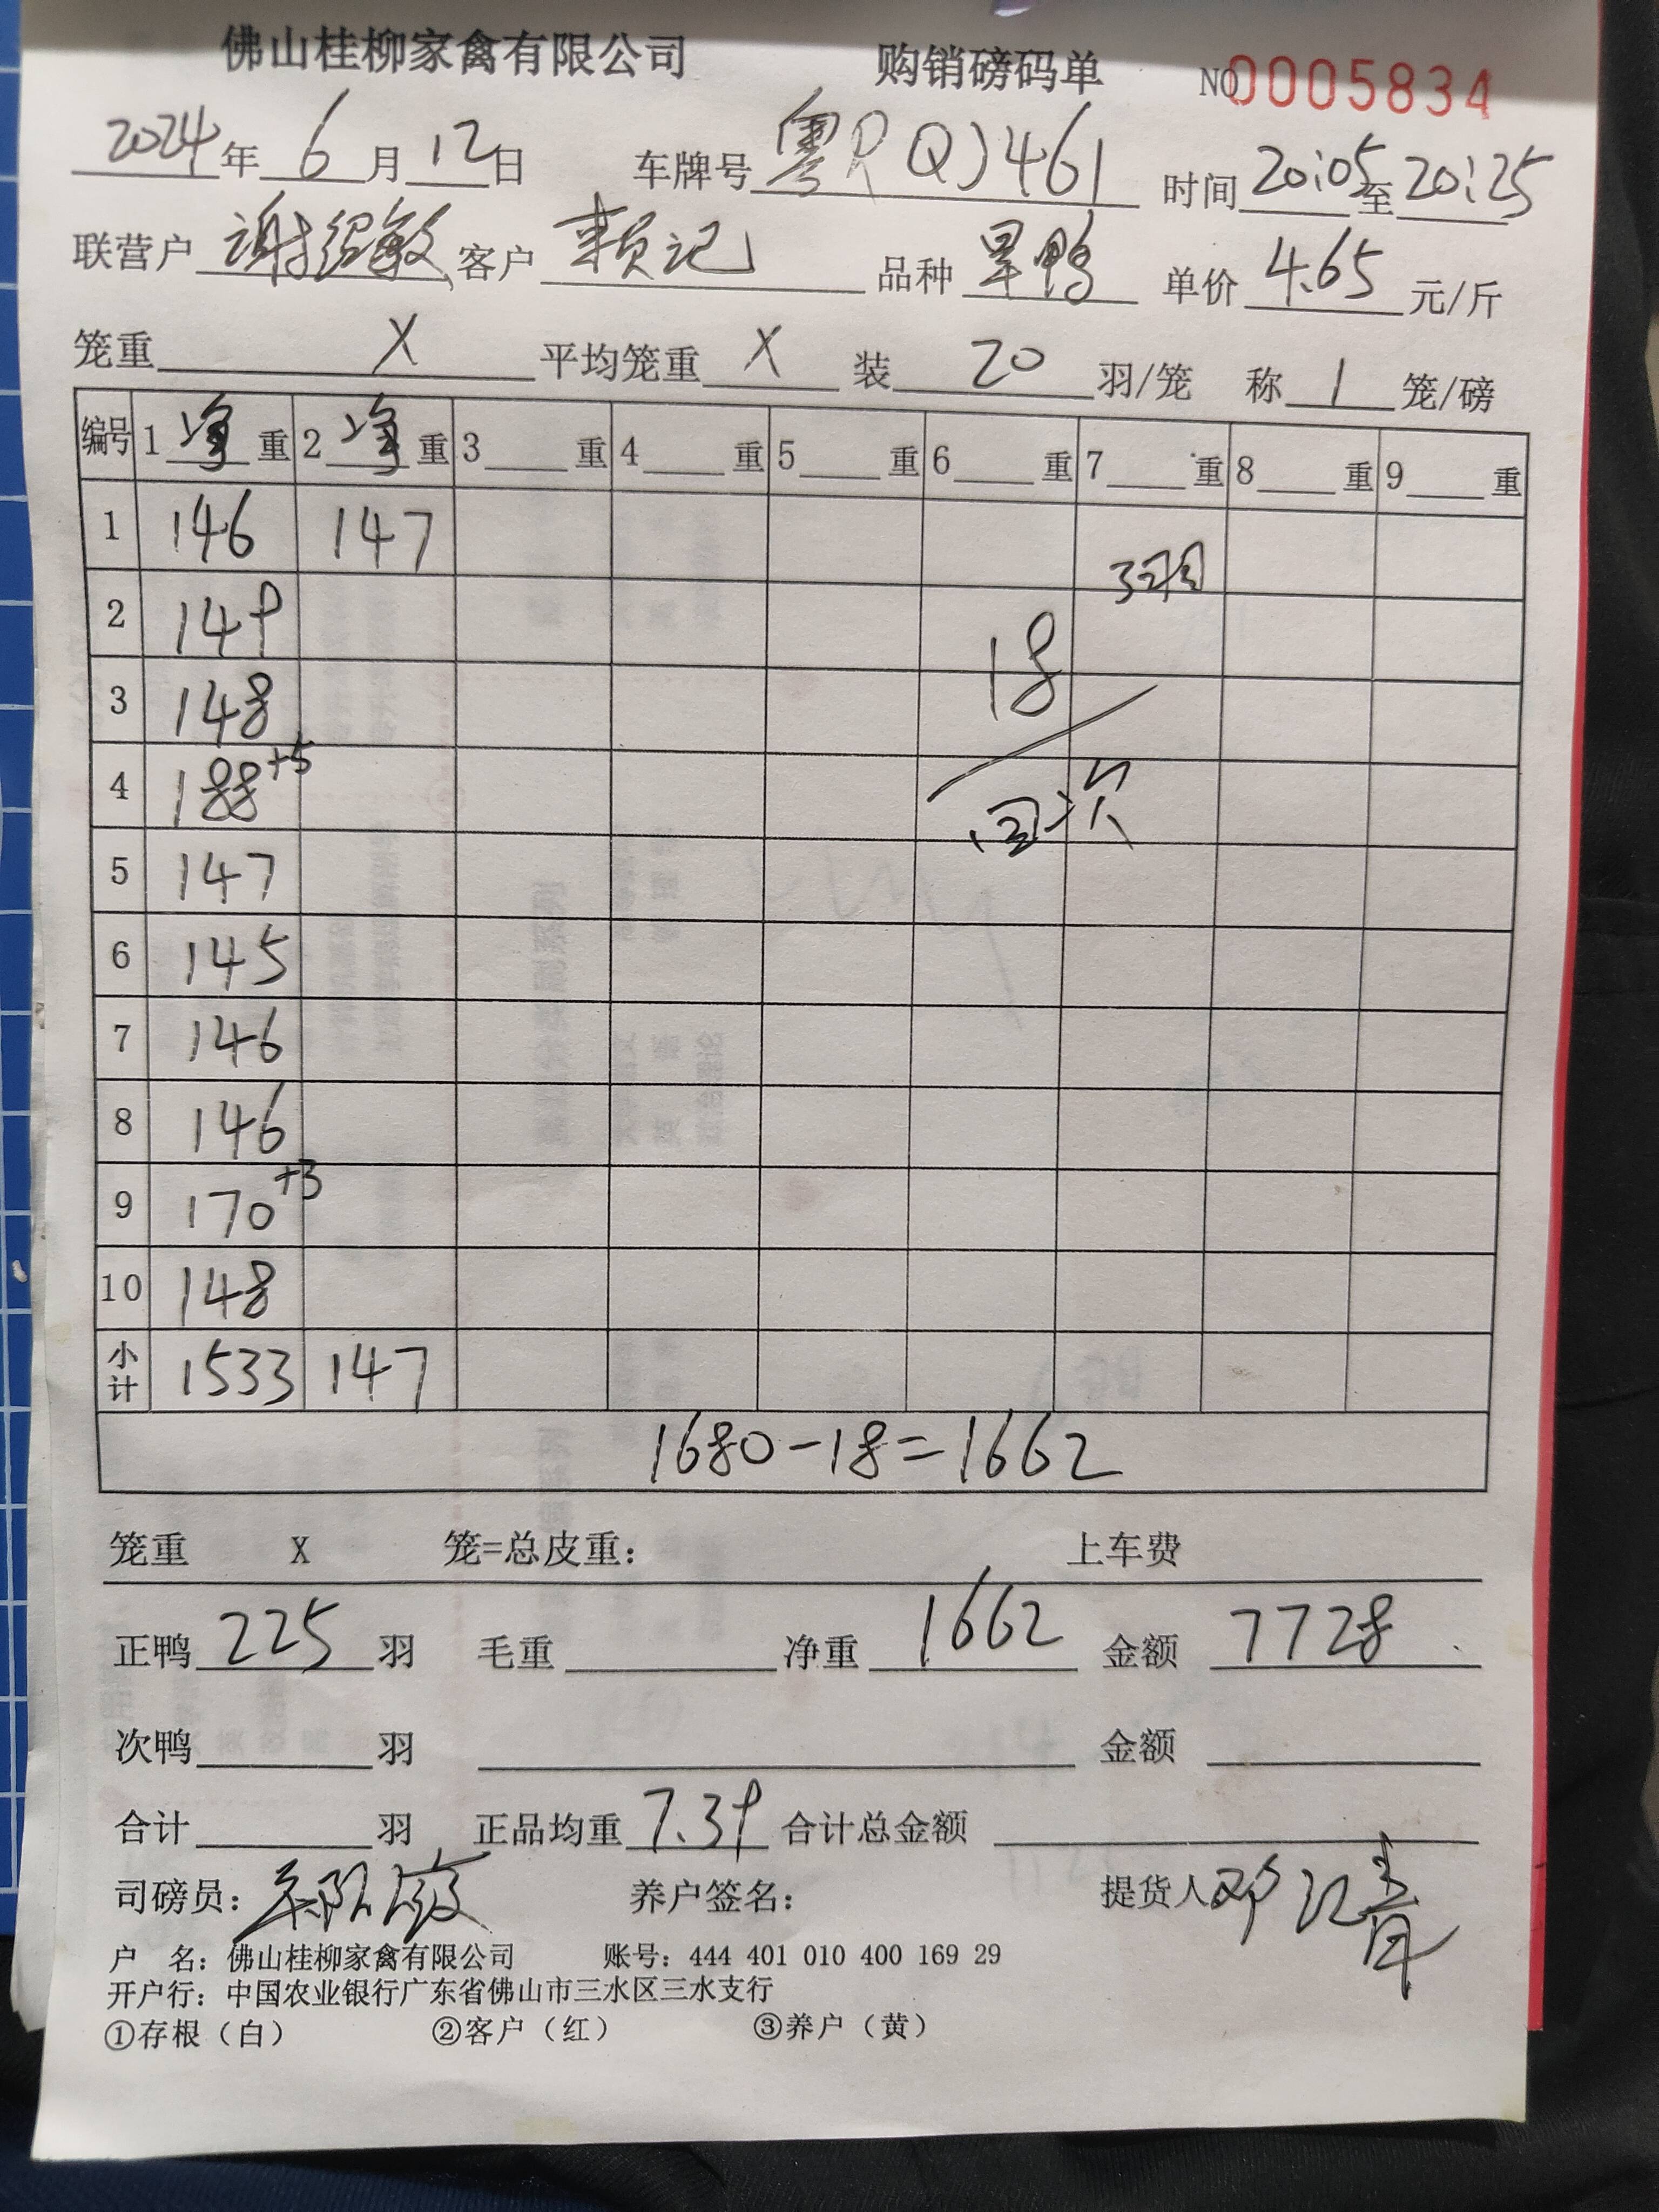 佛山桂柳家禽有限公司 购销磅码单 NO0005834
2024年6月12日 车牌号 粤RQJ461 时间 20:05至20:25
联营户 谢绍敏 客户 赖记 品种 旱鸭 单价 4.65 元/斤
笼重 X 平均笼重 X 装 20 羽/笼 称 1 笼/磅
编号 1净重 2净重 3 重 4 重 5 重 6 重 7 重 8 重 9 重
1 146 147
3羽
2 149
18
3 148
4 188+5
次
5 147
6 145
7 146
8 146
9 170+3
10 148
小计 1533 147
1680-18=1662
笼重 X 笼=总皮重: 上车费
正鸭 225 羽 毛重 净重 1662 金额 7728
次鸭 羽 金额
合计 羽 正品均重 7.39 合计总金额
司磅员: 养户签名: 提货人 邓江青
户 名: 佛山桂柳家禽有限公司 账号: 444 401 010 400 169 29
开户行: 中国农业银行广东省佛山市三水区三水支行
①存根（白） ②客户（红） ③养户（黄）